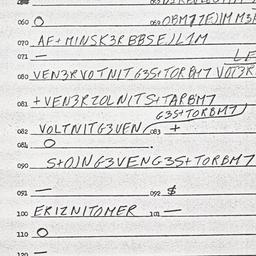 060 O 069 OBM77E)IM M3H
070 AF+HINSK3RBBSE)L1M
071 — LE
080 VEN3RVOTNITG3S+TORBM7 VOT3R
081 +VEN3RZOLNITS+TARBM7
G3S+TORBM7
082 VOLTNITG3VEN 083 +
084 O .
090 S+OING3VENG3S+TORBM7
091 — 092 $
100 ERIZNITOMER 101 —
110 O
120 —